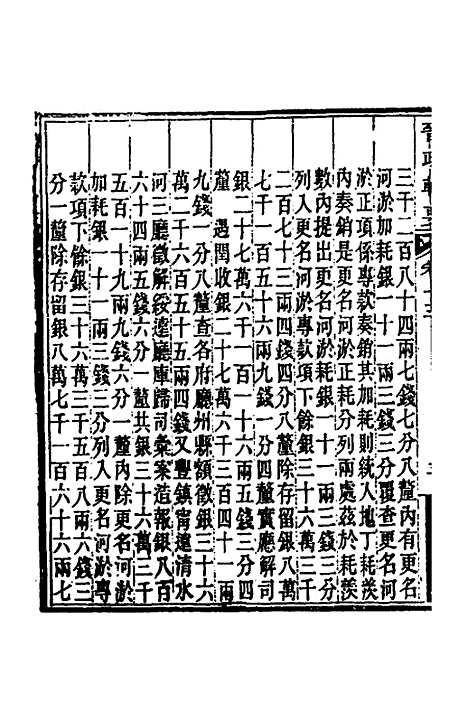 晉政輯要
三千二百八十四兩七錢七分八釐內有更名
河淤加耗銀一十一兩三錢三分覆查更名河
淤正項係專款奏銷其加耗則統入地丁耗羨
內奏銷是更名河淤正耗分列兩處茲於耗羨
數內提出更名河淤耗銀一十一兩三錢三分
列入更名河淤專款項下餘銀三十六萬三千
二百七十三兩四錢四分八釐除存留銀八萬
七千一百五十六兩九錢一分四釐實應解司
銀二十七萬六千一百一十六兩五錢三分四
釐 遇閏收銀二十七萬六千三百四十一兩
九錢一分八釐查各府廳州縣額徵銀三十六
萬二千六百五十五兩四錢又豐鎮甯遠清水
河三廳徵解綏遠廳庫歸司彙案造報銀八百
六十四兩五錢六分一釐共銀三十六萬三千
五百一十九兩九錢六分一釐內除更名河淤
加耗銀一十一兩三錢三分列入更名河淤專
款項下餘銀三十六萬三千五百八兩六錢三
分一釐除存留銀八萬七千一百六十六兩七